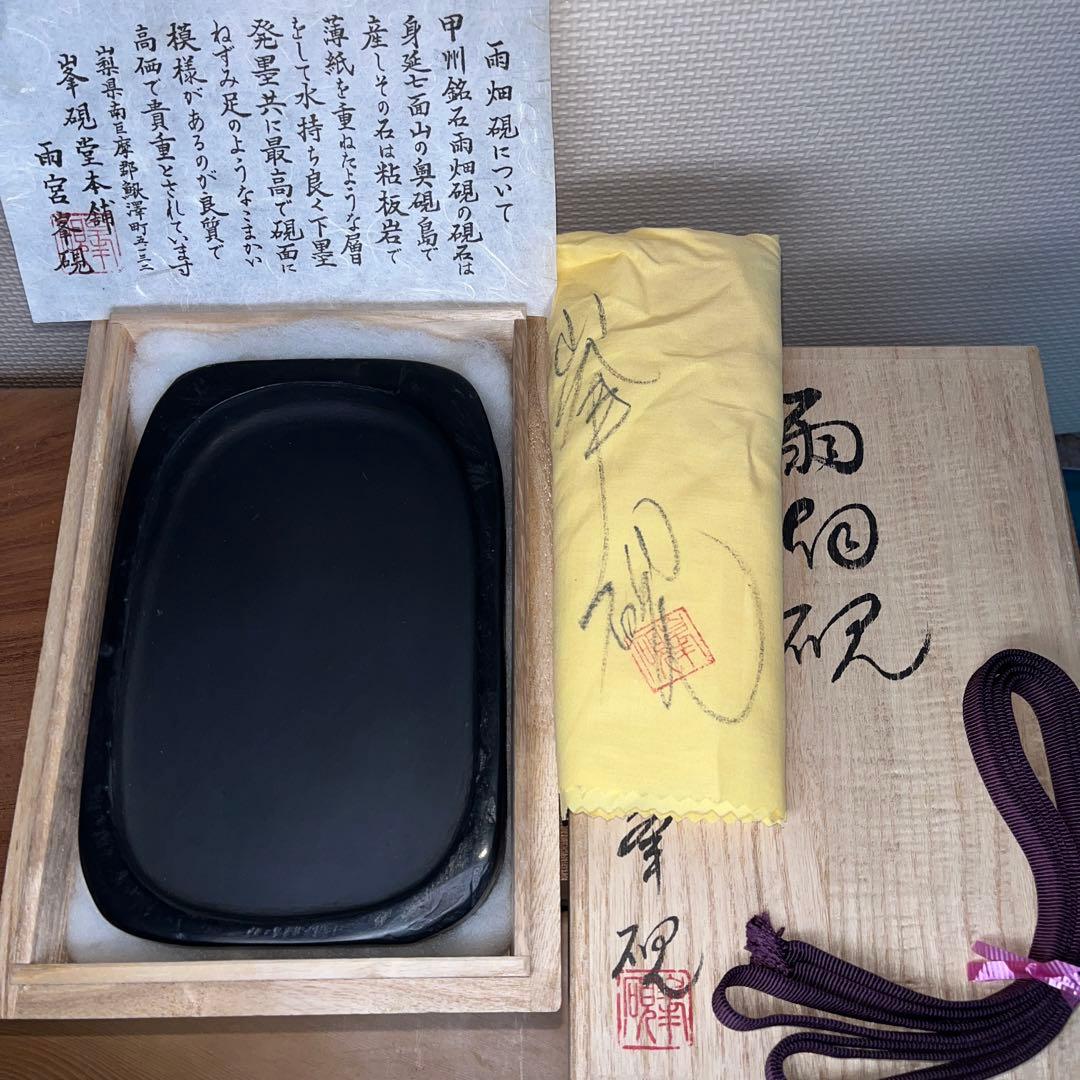 雨畑硯について
甲州銘石雨畑硯の硯石は
身延七面山の奥硯島で
産しその石は粘板岩で
薄紙を重ねたような層
をして水持ち良く下墨
発墨共に最高で硯面に
ねずみ足のようなこまかい
模様があるのが良質で
高価で貴重とされています
山梨県南巨摩郡鰍澤町五三二
峯硯堂本舗
雨宮峯硯
峯硯
峯硯
雨畑硯
峯硯
峯硯